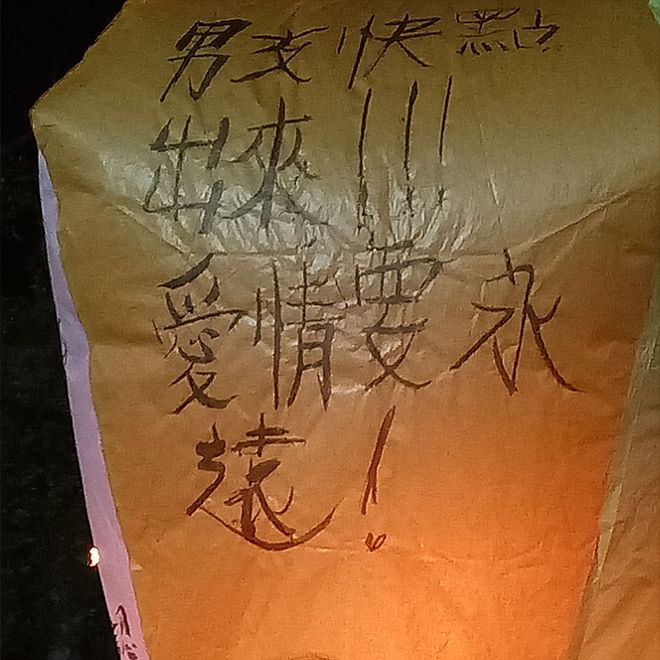 男友快點
出來!!!
愛情要永
遠!